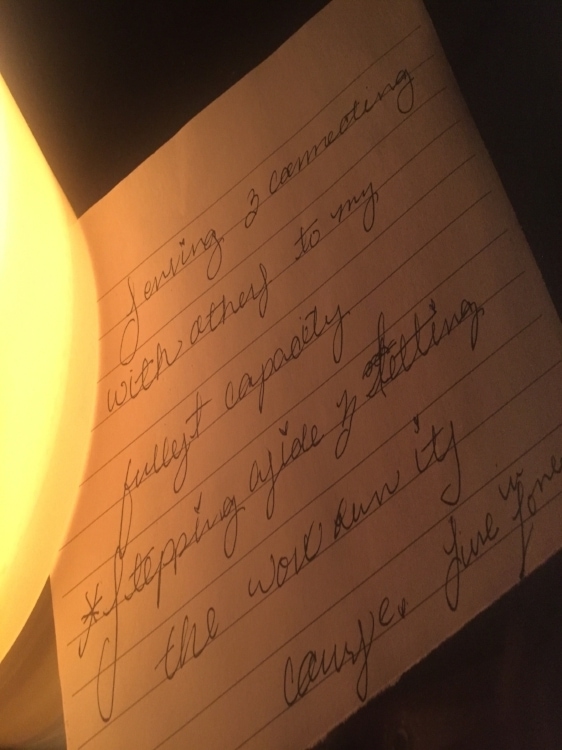 Serving & connecting
with others to my
fullest capacity
* Stepping aside & letting
the work run its
course.